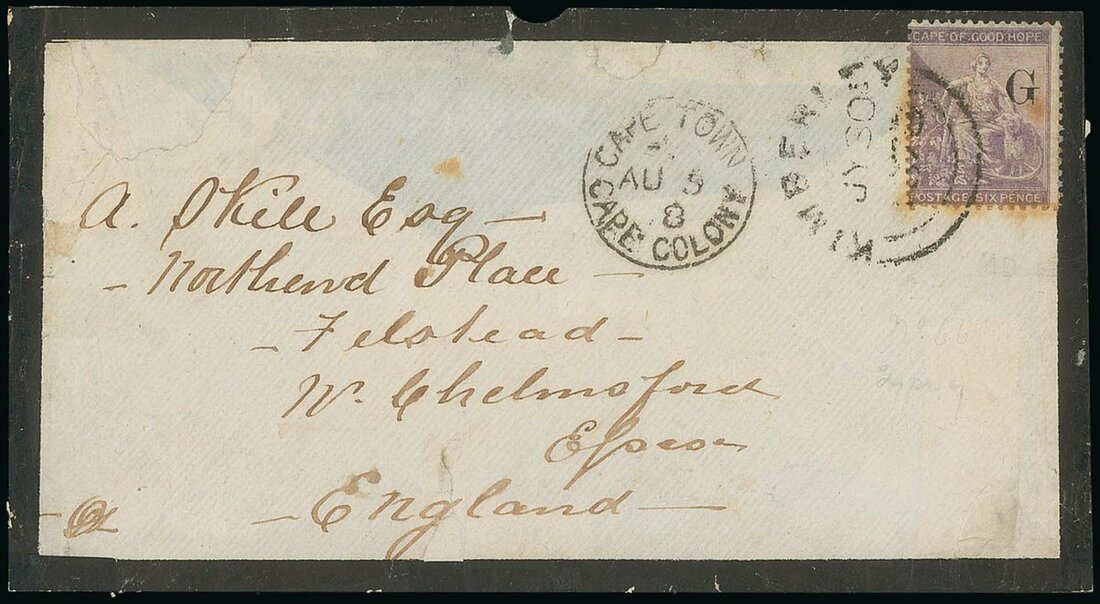 CAPE OF GOOD HOPE
G
POSTAGE SIX PENCE
KIMBERL
JY 30
CAPE TOWN
AU 5
8
CAPE COLONY
A. Skill Esq —
- Northend Place —
- Felstead -
Nr. Chelmsford
Essex
— England —